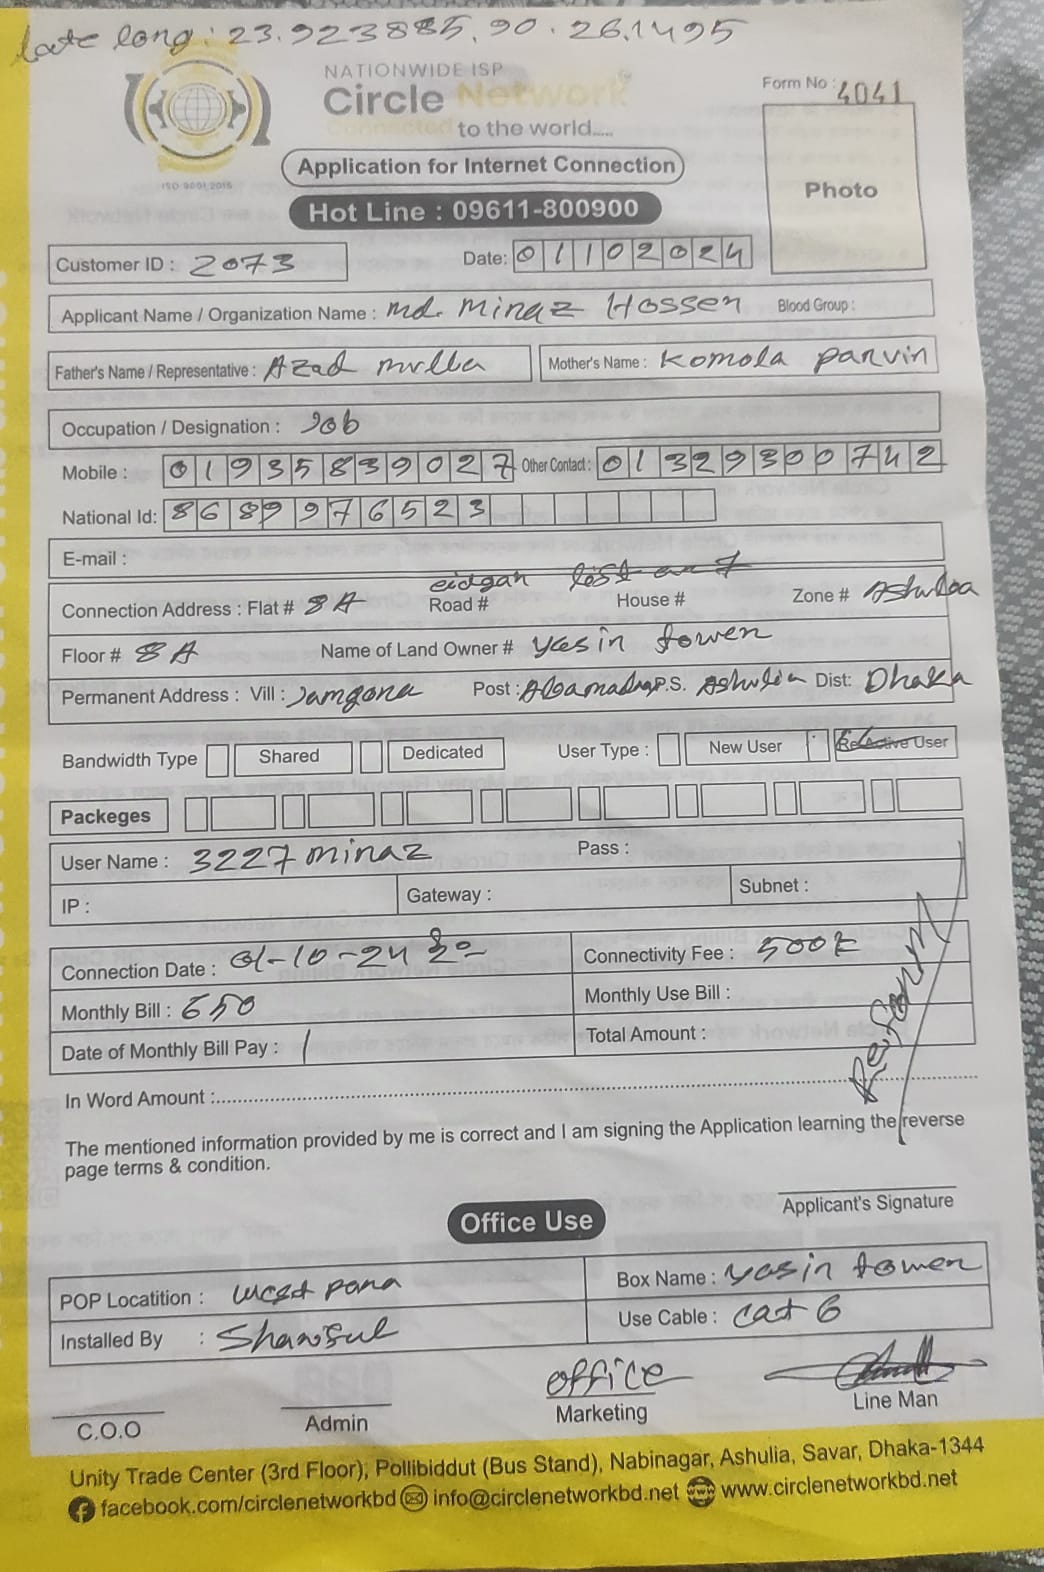 late long: 23.923885, 90.26.1495
NATIONWIDE ISP
Circle Network
Connected to the world.....
ISO 9001:2015
Form No : 4041
Photo
Application for Internet Connection
Hot Line : 09611-800900
Customer ID : 2073 Date: 01102024
Applicant Name / Organization Name : md. Minaz Hossen Blood Group :
Father's Name / Representative : Azad molla Mother's Name : Komola parvin
Occupation / Designation : Job
Mobile : 01935839027 Other Contact : 01329300742
National Id: 8689976523
E-mail :
Connection Address : Flat # 8A Road # eidgah House # Zone # Ashulia
Floor # 8A Name of Land Owner # yasin tower
Permanent Address : Vill : Jamgona Post : P.S. Ashulia Dist: Dhaka
Bandwidth Type Shared Dedicated User Type : New User ReActive User
Packeges
User Name : 3227minaz Pass :
IP : Gateway : Subnet :
Connection Date : 01-10-24 Connectivity Fee : 500
Monthly Bill : 650 Monthly Use Bill :
Date of Monthly Bill Pay : 1 Total Amount :
In Word Amount :
The mentioned information provided by me is correct and I am signing the Application learning the reverse
page terms & condition.
Applicant's Signature
Office Use
POP Locatition : west para Box Name : yasin tower
Installed By : Shamsul Use Cable : cat 6
office
C.O.O Admin Marketing Line Man
Unity Trade Center (3rd Floor), Pollibiddut (Bus Stand), Nabinagar, Ashulia, Savar, Dhaka-1344
facebook.com/circlenetworkbd info@circlenetworkbd.net www.circlenetworkbd.net